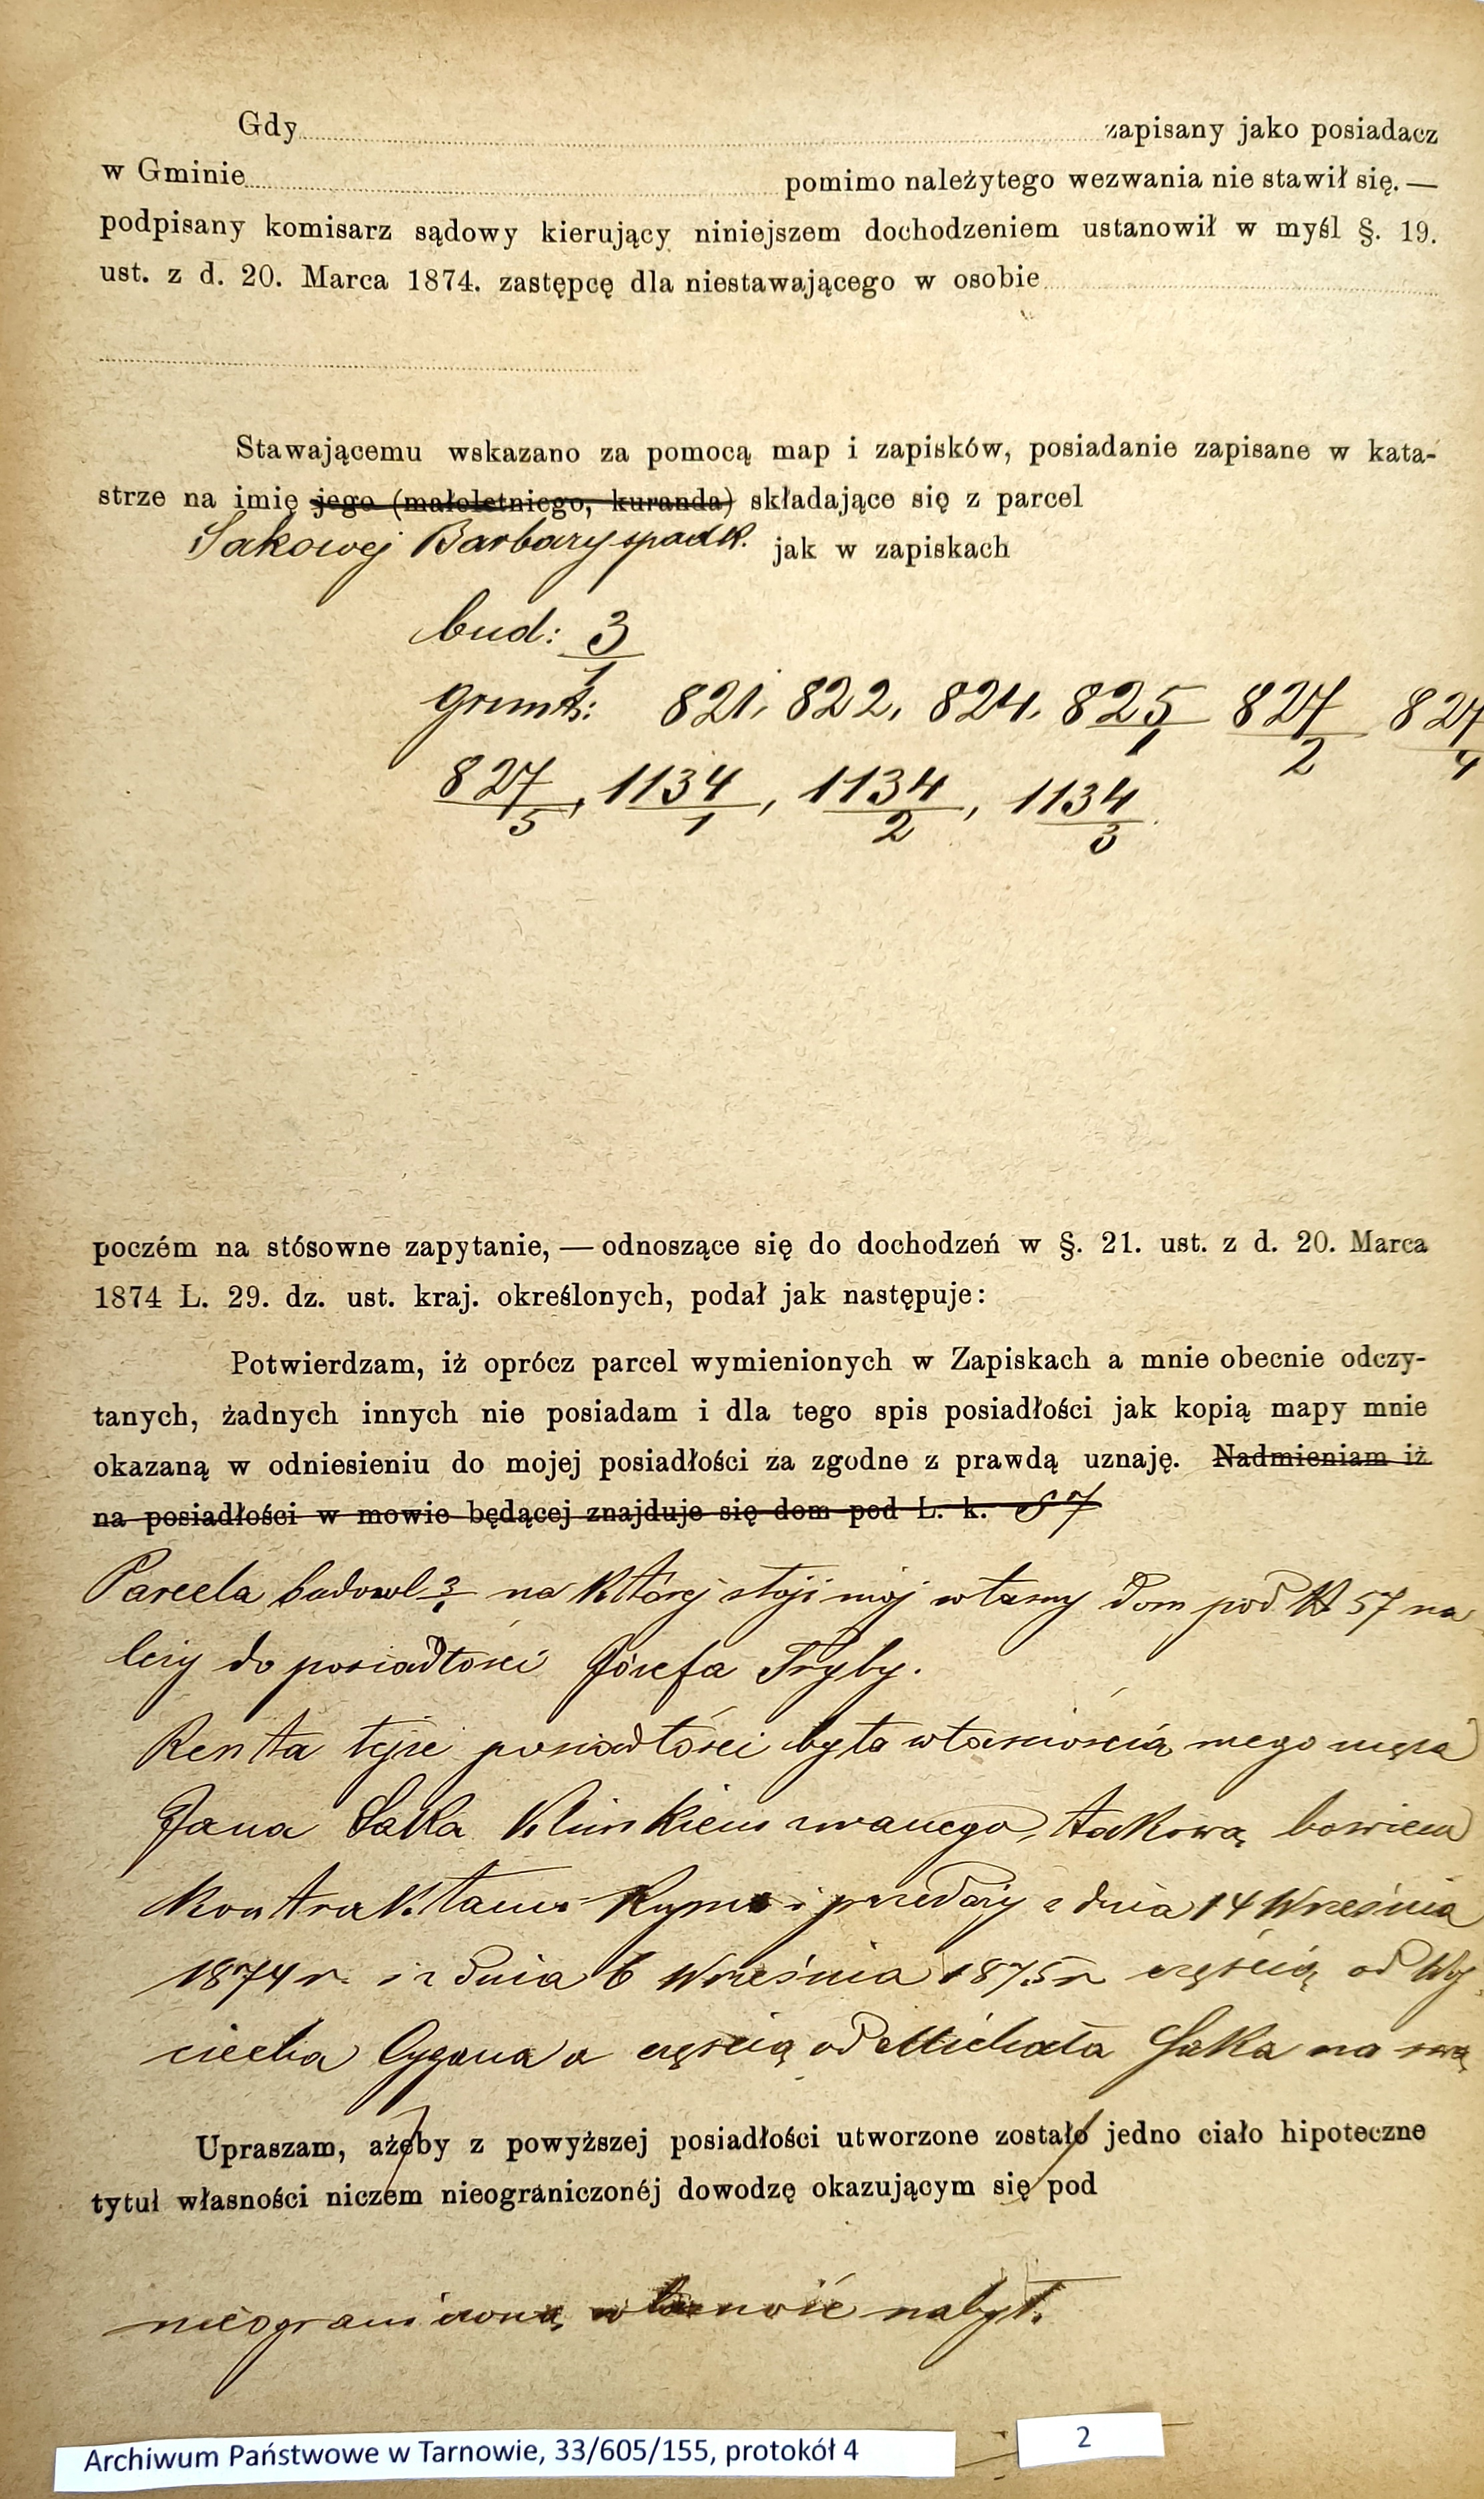 Gdy zapisany jako posiadacz
w Gminie pomimo należytego wezwania nie stawił się. —
podpisany komisarz sądowy kierujący niniejszem dochodzeniem ustanowił w myśl §. 19.
ust. z d. 20. Marca 1874. zastępcę dla niestawającego w osobie
Stawającemu wskazano za pomocą map i zapisków, posiadanie zapisane w kata-
strze na imię jego (małoletniego, kuranda) składające się z parcel
Sakowej Barbary spadk. jak w zapiskach
bud: 3/1
grunt: 821, 822, 824, 825/1 827/2 827/4
827/5, 1134/1, 1134/2, 1134/3
poczém na stósowne zapytanie, — odnoszące się do dochodzeń w §. 21. ust. z d. 20. Marca
1874 Ł. 29. dz. ust. kraj. określonych, podał jak następuje:
Potwierdzam, iż oprócz parcel wymienionych w Zapiskach a mnie obecnie odczy-
tanych, żadnych innych nie posiadam i dla tego spis posiadłości jak kopią mapy mnie
okazaną w odniesieniu do mojej posiadłości za zgodne z prawdą uznaję. Nadmieniam iż
na posiadłości w mowie będącej znajduje się dom pod Ł. k. 57
Parcela budowl 3/1 na której stoji mój własny dom pod N 57 na
leży do posiadłości Józefa Tryby.
Renta tejże posiadłości była własnością mego męża
Jana Saka Klimkiem zwanego, takową bowiem
kontraktami kupna i przedaży z dnia 14 Września
1874 r. i z dnia 6 Września 1875 r częścią od Woj
ciecha Cygana a częścią od Michała Saka na swą
Upraszam, ażeby z powyższej posiadłości utworzone zostało jedno ciało hipoteczne
tytuł własności niczém nieograniczonéj dowodzę okazującym się pod
nieograniczoną własność nabył.
Archiwum Państwowe w Tarnowie, 33/605/155, protokół 4
2